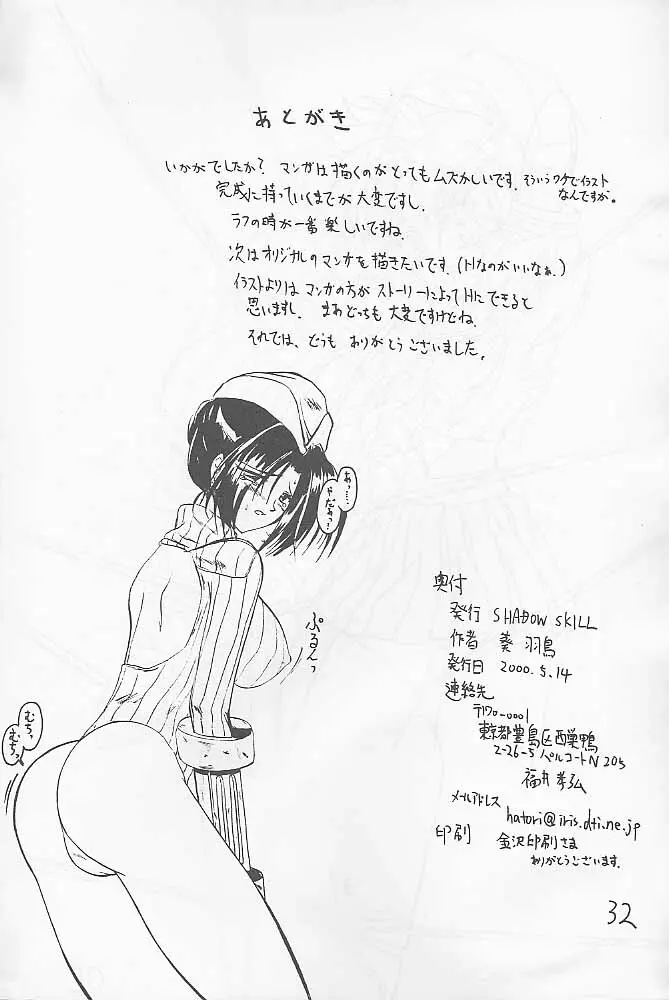 あとがき
いかがでしたか? マンガは描くのがとってもムズかしいです。そういうワケでイラスト
なんですが。
完成に持っていくまでが大変ですし、
ラフの時が一番楽しいですね。
次はオリジナルのマンガを描きたいです。(Hなのがいいなぁ。)
イラストよりはマンガの方がストーリーによってHにできると
思いますし、まあどっちも大変ですけどね。
それでは、どうもありがとうございました。
あっ…
やだぁっ!
ぷるんっ
むちっ
むちっ
奥付
発行 SHADOW SKILL
作者 葵 羽鳥
発行日 2000.5.14
連絡先
〒170-0001
東京都豊島区西巣鴨
2-26-5 パルコートN205
福井孝弘
メールアドレス
hatori@iris.dti.ne.jp
印刷 金沢印刷さま
ありがとうございます。
32